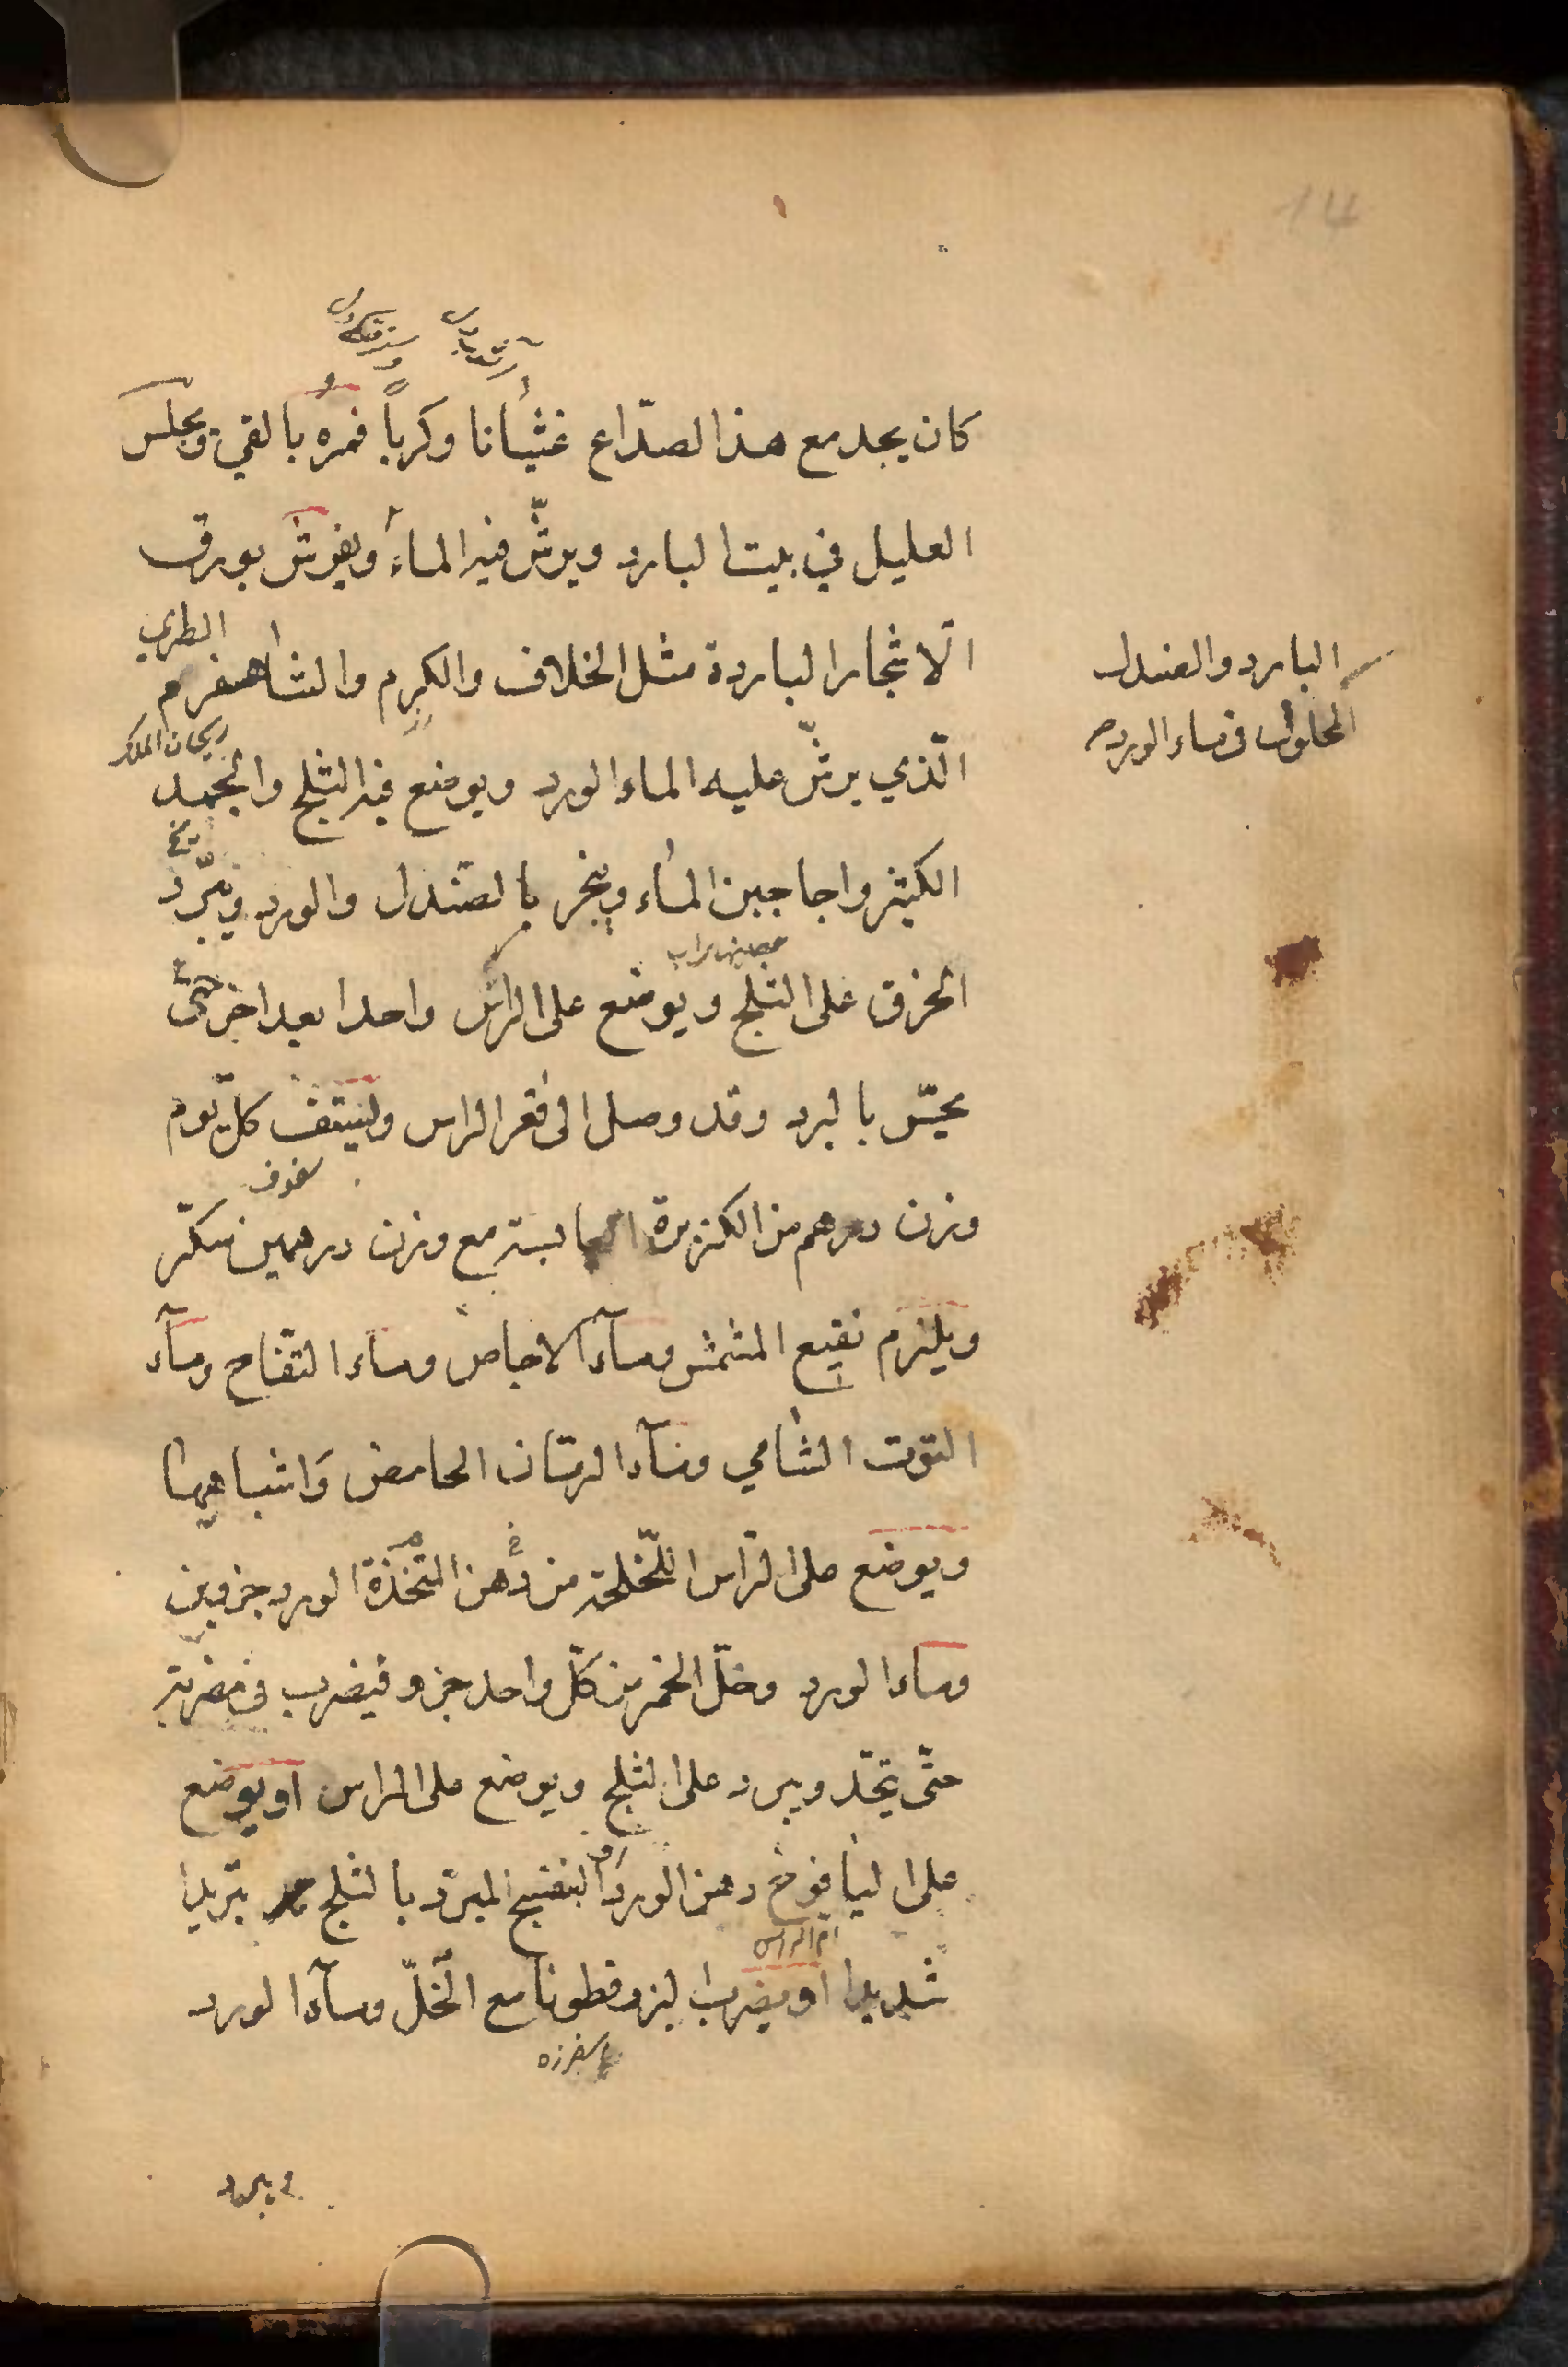 14
كان يجد مع هذا الصدّاع غثيانا وكرباً فمره بالقي ويجلس
العليل في بيت البارد ويرشّ فيه الماء ويفرش بورق
الطري
الاشجار الباردة مثل الخلاف والكرم والشاهسفرم
البارد والصندل
المحلول في ماء الورد صح
ريحان الملك
الّذي يرشّ عليه الماء الورد ويوضع فيه الثلج والجمد
الكثير واجاجين الماء ويبخر بالصندل والورد ويبرّد
الخرق على الثلج ويوضع على الراس واحدا بعد اخر حتّى
يحسّ بالبرد وقد وصل الى قعر الراس وليستفّ كلّ يوم
سفوف
وزن درهم من الكزبرة اليابسة مع وزن درهمين سكّر
ويلزم نقيع المشمش وماء الاجاص وماء التفّاح وماء
التوت الشامي وماء الرمّان الحامض وَاشباهها
ويوضع على الرّاس اللّخلخة من دُهن المتّخذة الورد جزوين
وماء الورد وخلّ الخمر من كلّ واحد جزو فيضرب في مضربة
حتّى يتّحد ويبرد على الثلج ويوضع على الراس او يوضع
على اليافوخ دهن الورد او البنفسج المبرّد بالثلج تبريدا
ام الراس
شديدا او يضرب البزرقطونا مع الخلّ وماء الورد
اسفرزه